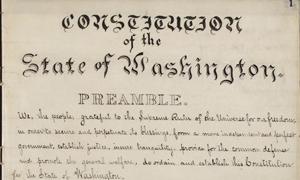 1
CONSTITUTION
of the
State of Washington.
PREAMBLE.
We, the people, grateful to the Supreme Ruler of the Universe for our freedom,
in order to secure and perpetuate its blessings, a more independent and perfect
government, establish justice, insure tranquility, provide for the common defense
and promote the general welfare, do ordain and establish this Constitution
for the State of Washington.